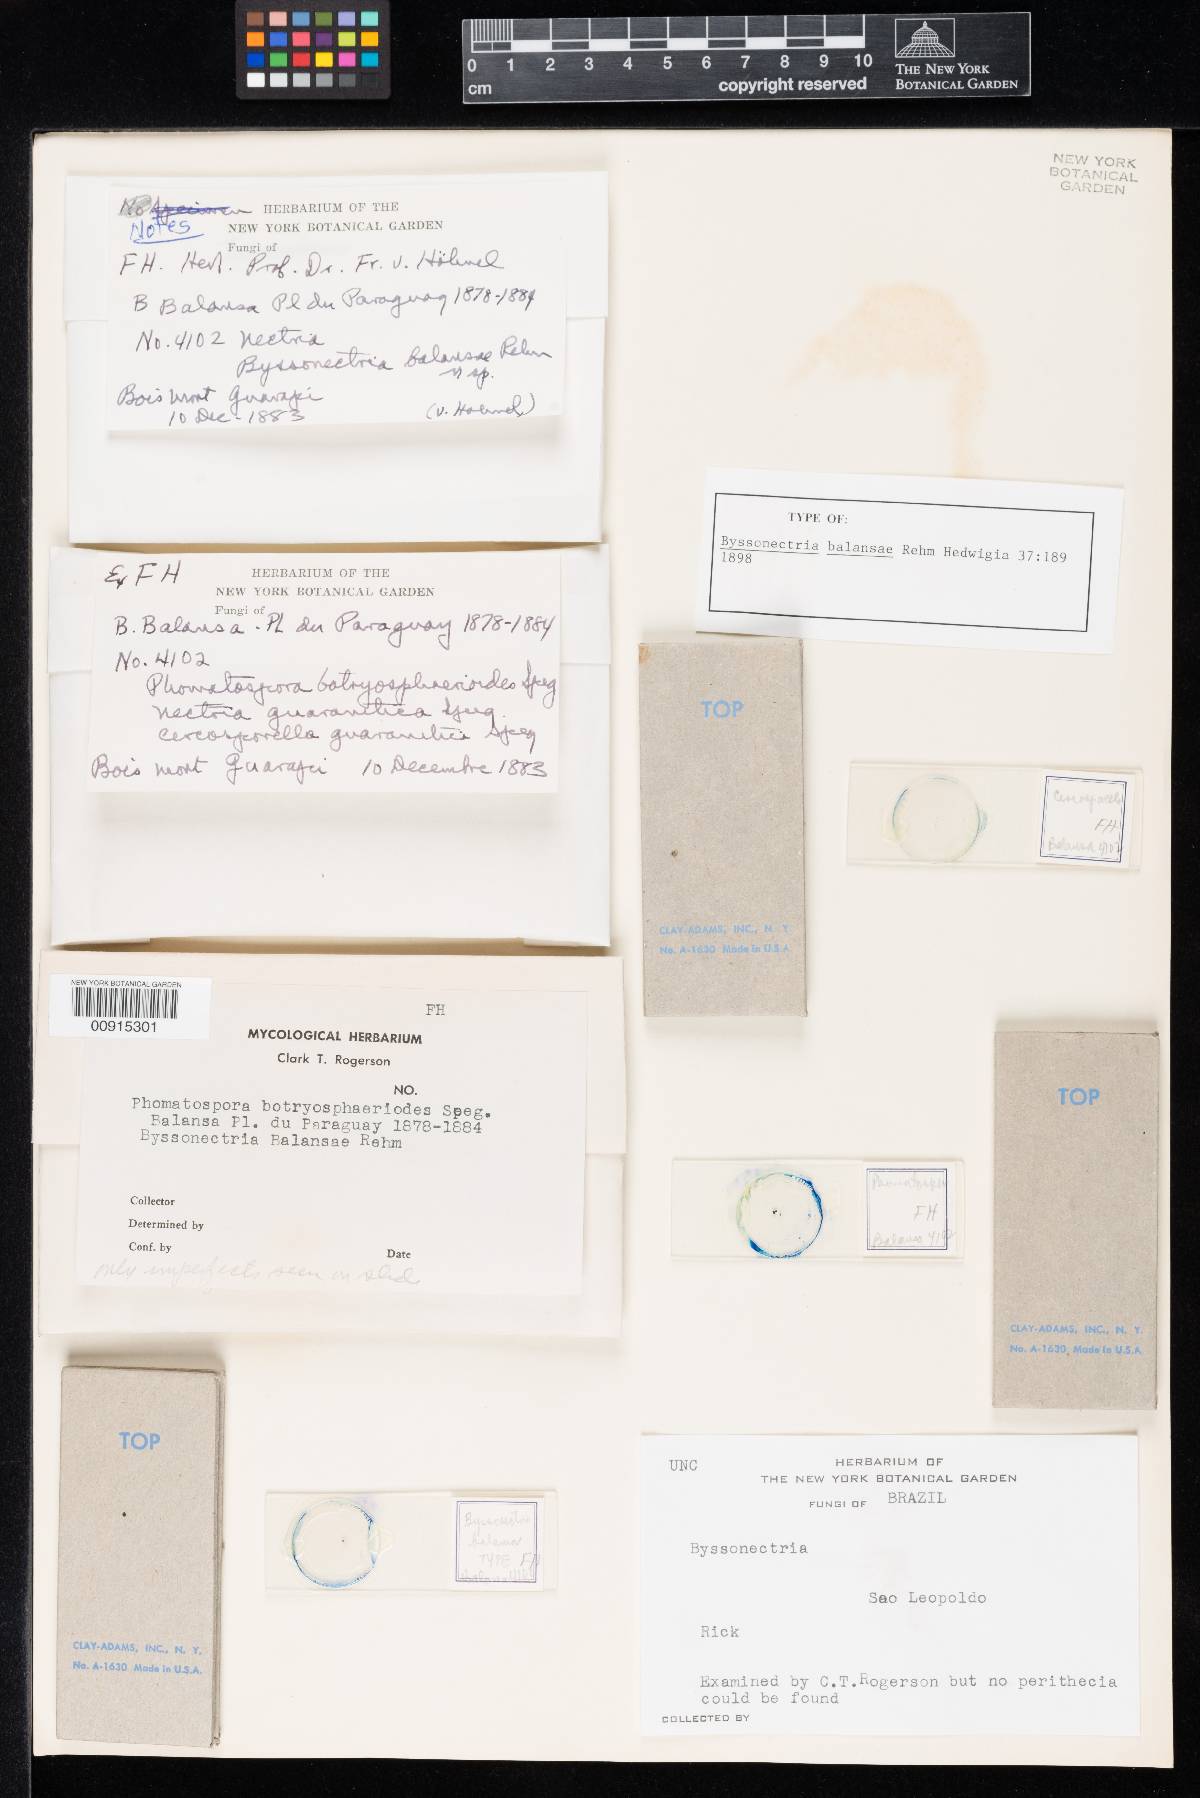 0 1 2 3 4 5 6 7 8 9 10
cm
copyright reserved
THE NEW YORK
BOTANICAL GARDEN
NEW YORK
BOTANICAL
GARDEN
No Specimen
Notes
HERBARIUM OF THE
NEW YORK BOTANICAL GARDEN
Fungi of
FH. Herb. Prof. Dr. Fr. v. Höhnel
B Balansa Pl du Paraguay 1878-1884
No. 4102 Nectria
Byssonectria balansae Rehm
n sp.
Bois mort Guarapi
10 Dec - 1883 (v. Hoehnel)
TYPE OF:
Byssonectria balansae Rehm Hedwigia 37:189
1898
Ex FH
HERBARIUM OF THE
NEW YORK BOTANICAL GARDEN
Fungi of
B. Balansa - Pl du Paraguay 1878-1884
No. 4102
Phomatospora botryosphaerioides Speg
Nectria guaranitica Speg.
Cercosporella guaranitica Speg
Bois mort Guarapi 10 Decembre 1883
TOP
CLAY-ADAMS, INC., N. Y.
No. A-1630 Made in U.S.A.
FH
Balansa 4102
NEW YORK BOTANICAL GARDEN
00915301
FH
MYCOLOGICAL HERBARIUM
Clark T. Rogerson
NO.
Phomatospora botryosphaeriodes Speg.
Balansa Pl. du Paraguay 1878-1884
Byssonectria Balansae Rehm
Collector
Determined by
Conf. by
Date
only imperfects seen on slide
TOP
CLAY-ADAMS, INC., N. Y.
No. A-1630, Made in U.S.A.
FH
Balansa 4102
TOP
CLAY-ADAMS, INC., N. Y.
No. A-1630 Made in U.S.A.
Byssonectria
balansae
TYPE FH
UNC
HERBARIUM OF
THE NEW YORK BOTANICAL GARDEN
FUNGI OF BRAZIL
Byssonectria
Sao Leopoldo
Rick
Examined by C.T.Rogerson but no perithecia
could be found
COLLECTED BY